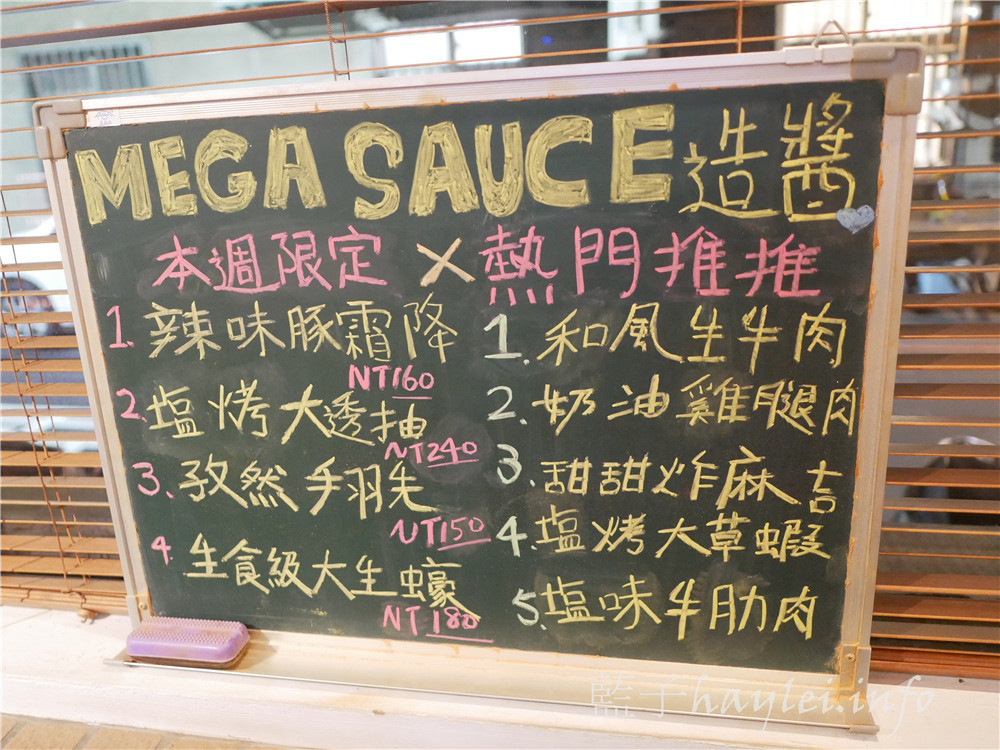 MEGA SAUCE 造醬
本週限定 × 熱門推推
1. 辣味豚霜降
NT160
2. 塩烤大透抽
NT240
3. 孜然手羽先
NT150
4. 生食級大生蠔
NT180
1. 和風生牛肉
2. 奶油雞腿肉
3. 甜甜炸麻吉
4. 塩烤大草蝦
5. 塩味牛肋肉
藍子haylei.info